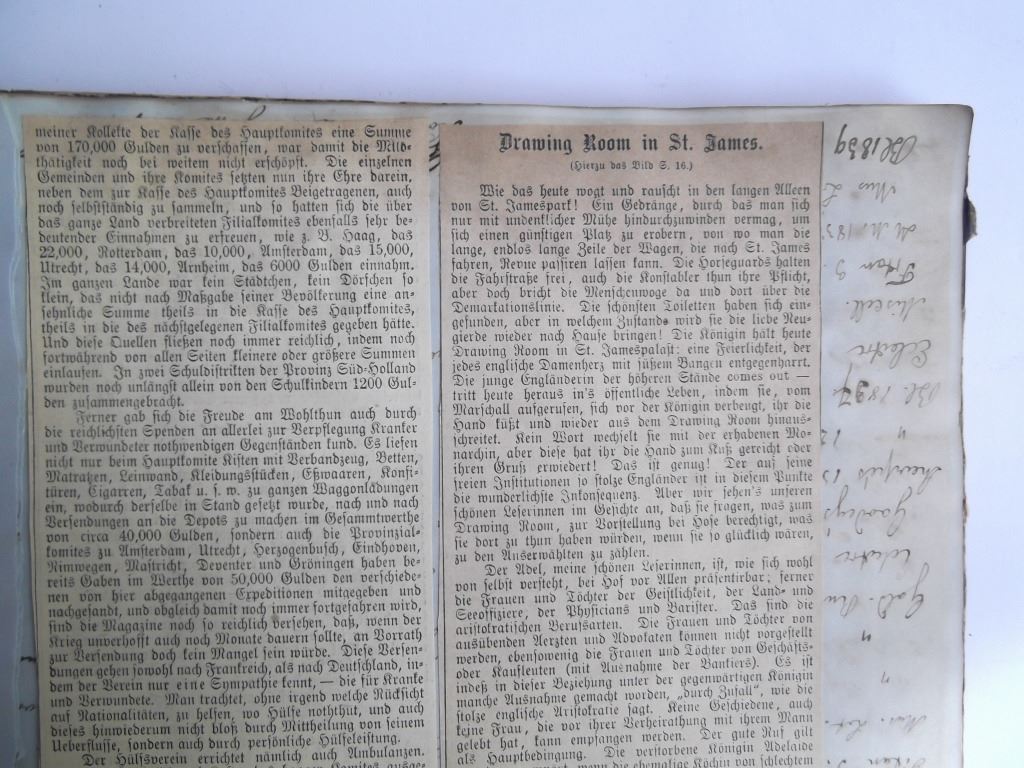 meiner Kollekte der Kasse des Hauptkomites eine Summe
von 170,000 Gulden zu verschaffen, war damit die Mild-
thätigkeit noch bei weitem nicht erschöpft. Die einzelnen
Gemeinden und ihre Komites setzten nun ihre Ehre darein,
neben dem zur Kasse des Hauptkomites Beigetragenen, auch
noch selbstständig zu sammeln, und so hatten sich die über
das ganze Land verbreiteten Filialkomites ebenfalls sehr be-
deutender Einnahmen zu erfreuen, wie z. B. Haag, das
22,000, Rotterdam, das 10,000, Amsterdam, das 15,000,
Utrecht, das 14,000, Arnheim, das 6000 Gulden einnahm.
Im ganzen Lande war kein Städtchen, kein Dörfchen so
klein, das nicht nach Maßgabe seiner Bevölkerung eine an-
sehnliche Summe theils in die Kasse des Hauptkomites,
theils in die des nächstgelegenen Filialkomites gegeben hätte.
Und diese Quellen fließen noch immer reichlich, indem noch
fortwährend von allen Seiten kleinere oder größere Summen
einlaufen. In zwei Schuldistrikten der Provinz Süd-Holland
wurden noch unlängst allein von den Schulkindern 1200 Gul-
den zusammengebracht.
Ferner gab sich die Freude am Wohlthun auch durch
die reichlichsten Spenden an allerlei zur Verpflegung Kranker
und Verwundeter nothwendigen Gegenständen kund. Es liefen
nicht nur beim Hauptkomite Kisten mit Verbandzeug, Betten,
Matratzen, Leinwand, Kleidungsstücken, Eßwaaren, Konfi-
türen, Cigarren, Tabak u. s. w. zu ganzen Waggonladungen
ein, wodurch derselbe in Stand gesetzt wurde, nach und nach
Versendungen an die Depots zu machen im Gesammtwerthe
von circa 40,000 Gulden, sondern auch die Provinzial-
komites zu Amsterdam, Utrecht, Herzogenbusch, Eindhoven,
Nimwegen, Mastricht, Deventer und Gröningen haben be-
reits Gaben im Werthe von 50,000 Gulden den verschiede-
nen von hier abgegangenen Expeditionen mitgegeben und
nachgesandt, und obgleich damit noch immer fortgefahren wird,
sind die Magazine noch so reichlich versehen, daß, wenn der
Krieg unverhofft auch noch Monate dauern sollte, an Vorrath
zur Versendung doch kein Mangel sein würde. Diese Versen-
dungen gehen sowohl nach Frankreich, als nach Deutschland, in-
dem der Verein nur eine Sympathie kennt, — die für Kranke
und Verwundete. Man trachtet, ohne irgend welche Rücksicht
auf Nationalitäten, zu helfen, wo Hülfe noththut, und auch
dieses hinwiederum nicht bloß durch Mittheilung von seinem
Ueberflusse, sondern auch durch persönliche Hülfeleistung.
Der Hülfsverein errichtet nämlich auch Ambulanzen.
Drawing Room in St. James.
(Hierzu das Bild S. 16.)
Wie das heute wogt und rauscht in den langen Alleen
von St. Jamespark! Ein Gedränge, durch das man sich
nur mit undenklicher Mühe hindurchzuwinden vermag, um
sich einen günstigen Platz zu erobern, von wo man die
lange, endlos lange Zeile der Wagen, die nach St. James
fahren, Revue passiren lassen kann. Die Horseguards halten
die Fahrstraße frei, auch die Konstabler thun ihre Pflicht,
aber doch bricht die Menschenwoge da und dort über die
Demarkationslinie. Die schönsten Toiletten haben sich ein-
gefunden, aber in welchem Zustande wird sie die liebe Neu-
gierde wieder nach Hause bringen! Die Königin hält heute
Drawing Room in St. Jamespalast: eine Feierlichkeit, der
jedes englische Damenherz mit süßem Bangen entgegenharrt.
Die junge Engländerin der höheren Stände comes out —
tritt heute heraus in's öffentliche Leben, indem sie, vom
Marschall aufgerufen, sich vor der Königin verbeugt, ihr die
Hand küßt und wieder aus dem Drawing Room hinaus-
schreitet. Kein Wort wechselt sie mit der erhabenen Mo-
narchin, aber diese hat ihr die Hand zum Kuß gereicht oder
ihren Gruß erwiedert! Das ist genug! Der auf seine
freien Institutionen so stolze Engländer ist in diesem Punkte
die wunderlichste Inkonsequenz. Aber wir sehen's unseren
schönen Leserinnen im Gesichte an, daß sie fragen, was zum
Drawing Room, zur Vorstellung bei Hofe berechtigt, was
sie dort zu thun haben würden, wenn sie so glücklich wären,
zu den Auserwählten zu zählen.
Der Adel, meine schönen Leserinnen, ist, wie sich wohl
von selbst versteht, bei Hof vor Allen präsentirbar; ferner
die Frauen und Töchter der Geistlichkeit, der Land- und
Seeoffiziere, der Physicians und Barister. Das sind die
aristokratischen Berufsarten. Die Frauen und Töchter von
ausübenden Aerzten und Advokaten können nicht vorgestellt
werden, ebensowenig die Frauen und Töchter von Geschäfts-
oder Kaufleuten (mit Ausnahme der Bankiers). Es ist
indeß in dieser Beziehung unter der gegenwärtigen Königin
manche Ausnahme gemacht worden, „durch Zufall“, wie die
stolze englische Aristokratie sagt. Keine Geschiedene, auch
keine Frau, die vor ihrer Verheirathung mit ihrem Mann
gelebt hat, kann empfangen werden. Der gute Ruf gilt
als Hauptbedingung. Die verstorbene Königin Adelaide
wenn die ehemalige Köchin von schlechtem
Bl 1839
Miscell.
Electra
Bl. 1837
Goodeys